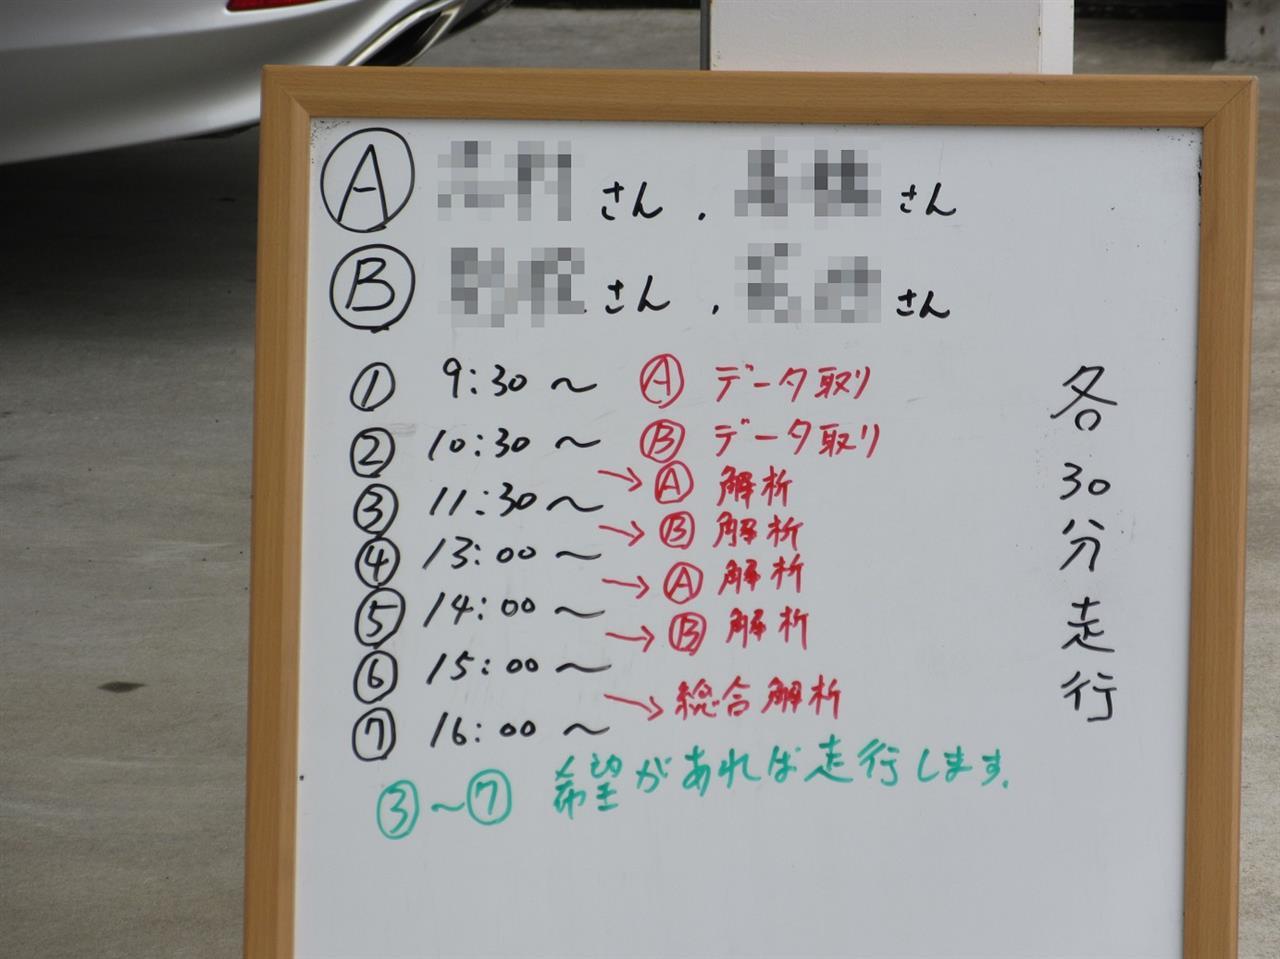 Ⓐ さん . さん
Ⓑ さん , さん
① 9:30 ～ Ⓐ データ取り
② 10:30 ～ Ⓑ データ取り
→ Ⓐ 解析
③ 11:30 ～
→ Ⓑ 解析
④ 13:00 ～
→ Ⓐ 解析
⑤ 14:00 ～
→ Ⓑ 解析
⑥ 15:00 ～
→ 総合解析
⑦ 16:00 ～
③～⑦ 希望があれば走行します.
各30分走行